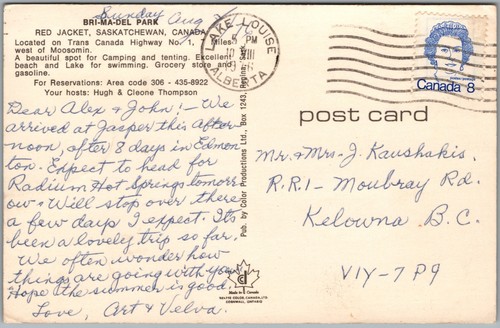 Sunday Aug
BRI-MA-DEL PARK
RED JACKET, SASKATCHEWAN, CANADA
Located on Trans Canada Highway No. 1, 7 Miles
west of Moosomin.
A beautiful spot for Camping and tenting. Excellent
beach and Lake for swimming. Grocery store and
gasoline.
For Reservations: Area code 306 - 435-8922
Your hosts: Hugh & Cleone Thompson
Dear Alex & John! - We
arrived at Jasper this after-
noon, after 8 days in Edmon-
ton. Expect to head for
Radium Hot Springs tomorr-
ow & Will stop over there
a few days I expect. It's
been a lovely trip so far.
We often wonder how
things are going with you.
Hope the summer is good.
Love, Art & Velva.
Pub. by Color Productions Ltd., Box 1243, Regina, Sask.
Made in Canada
CORNWALL, ONTARIO
LAKE LOUISE
PM
VIII
ALBERTA
Canada 8
post card
Mr. & Mrs. J. Kaushakis.
R.R.1 - Moubray Rd.
Kelowna B.C.
V1Y-7P9